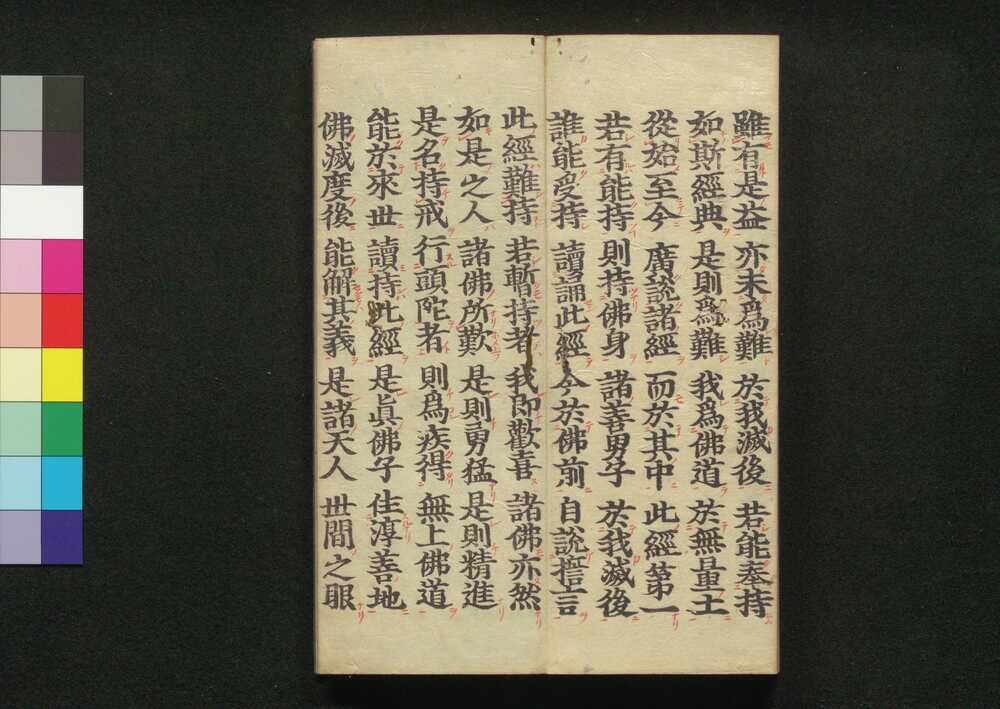 雖有是益 亦未爲難 於我滅後 若能奉持
如斯經典 是則爲難 我爲佛道 於無量土
從始至今 廣説諸經 而於其中 此經第一
若有能持 則持佛身 諸善男子 於我滅後
誰能受持 讀誦此經 今於佛前 自説誓言
此經難持 若暫持者 我即歡喜 諸佛亦然
如是之人 諸佛所歎 是則勇猛 是則精進
是名持戒 行頭陀者 則爲疾得 無上佛道
能於來世 讀持此經 是眞佛子 住淳善地
佛滅度後 能解其義 是諸天人 世間之眼